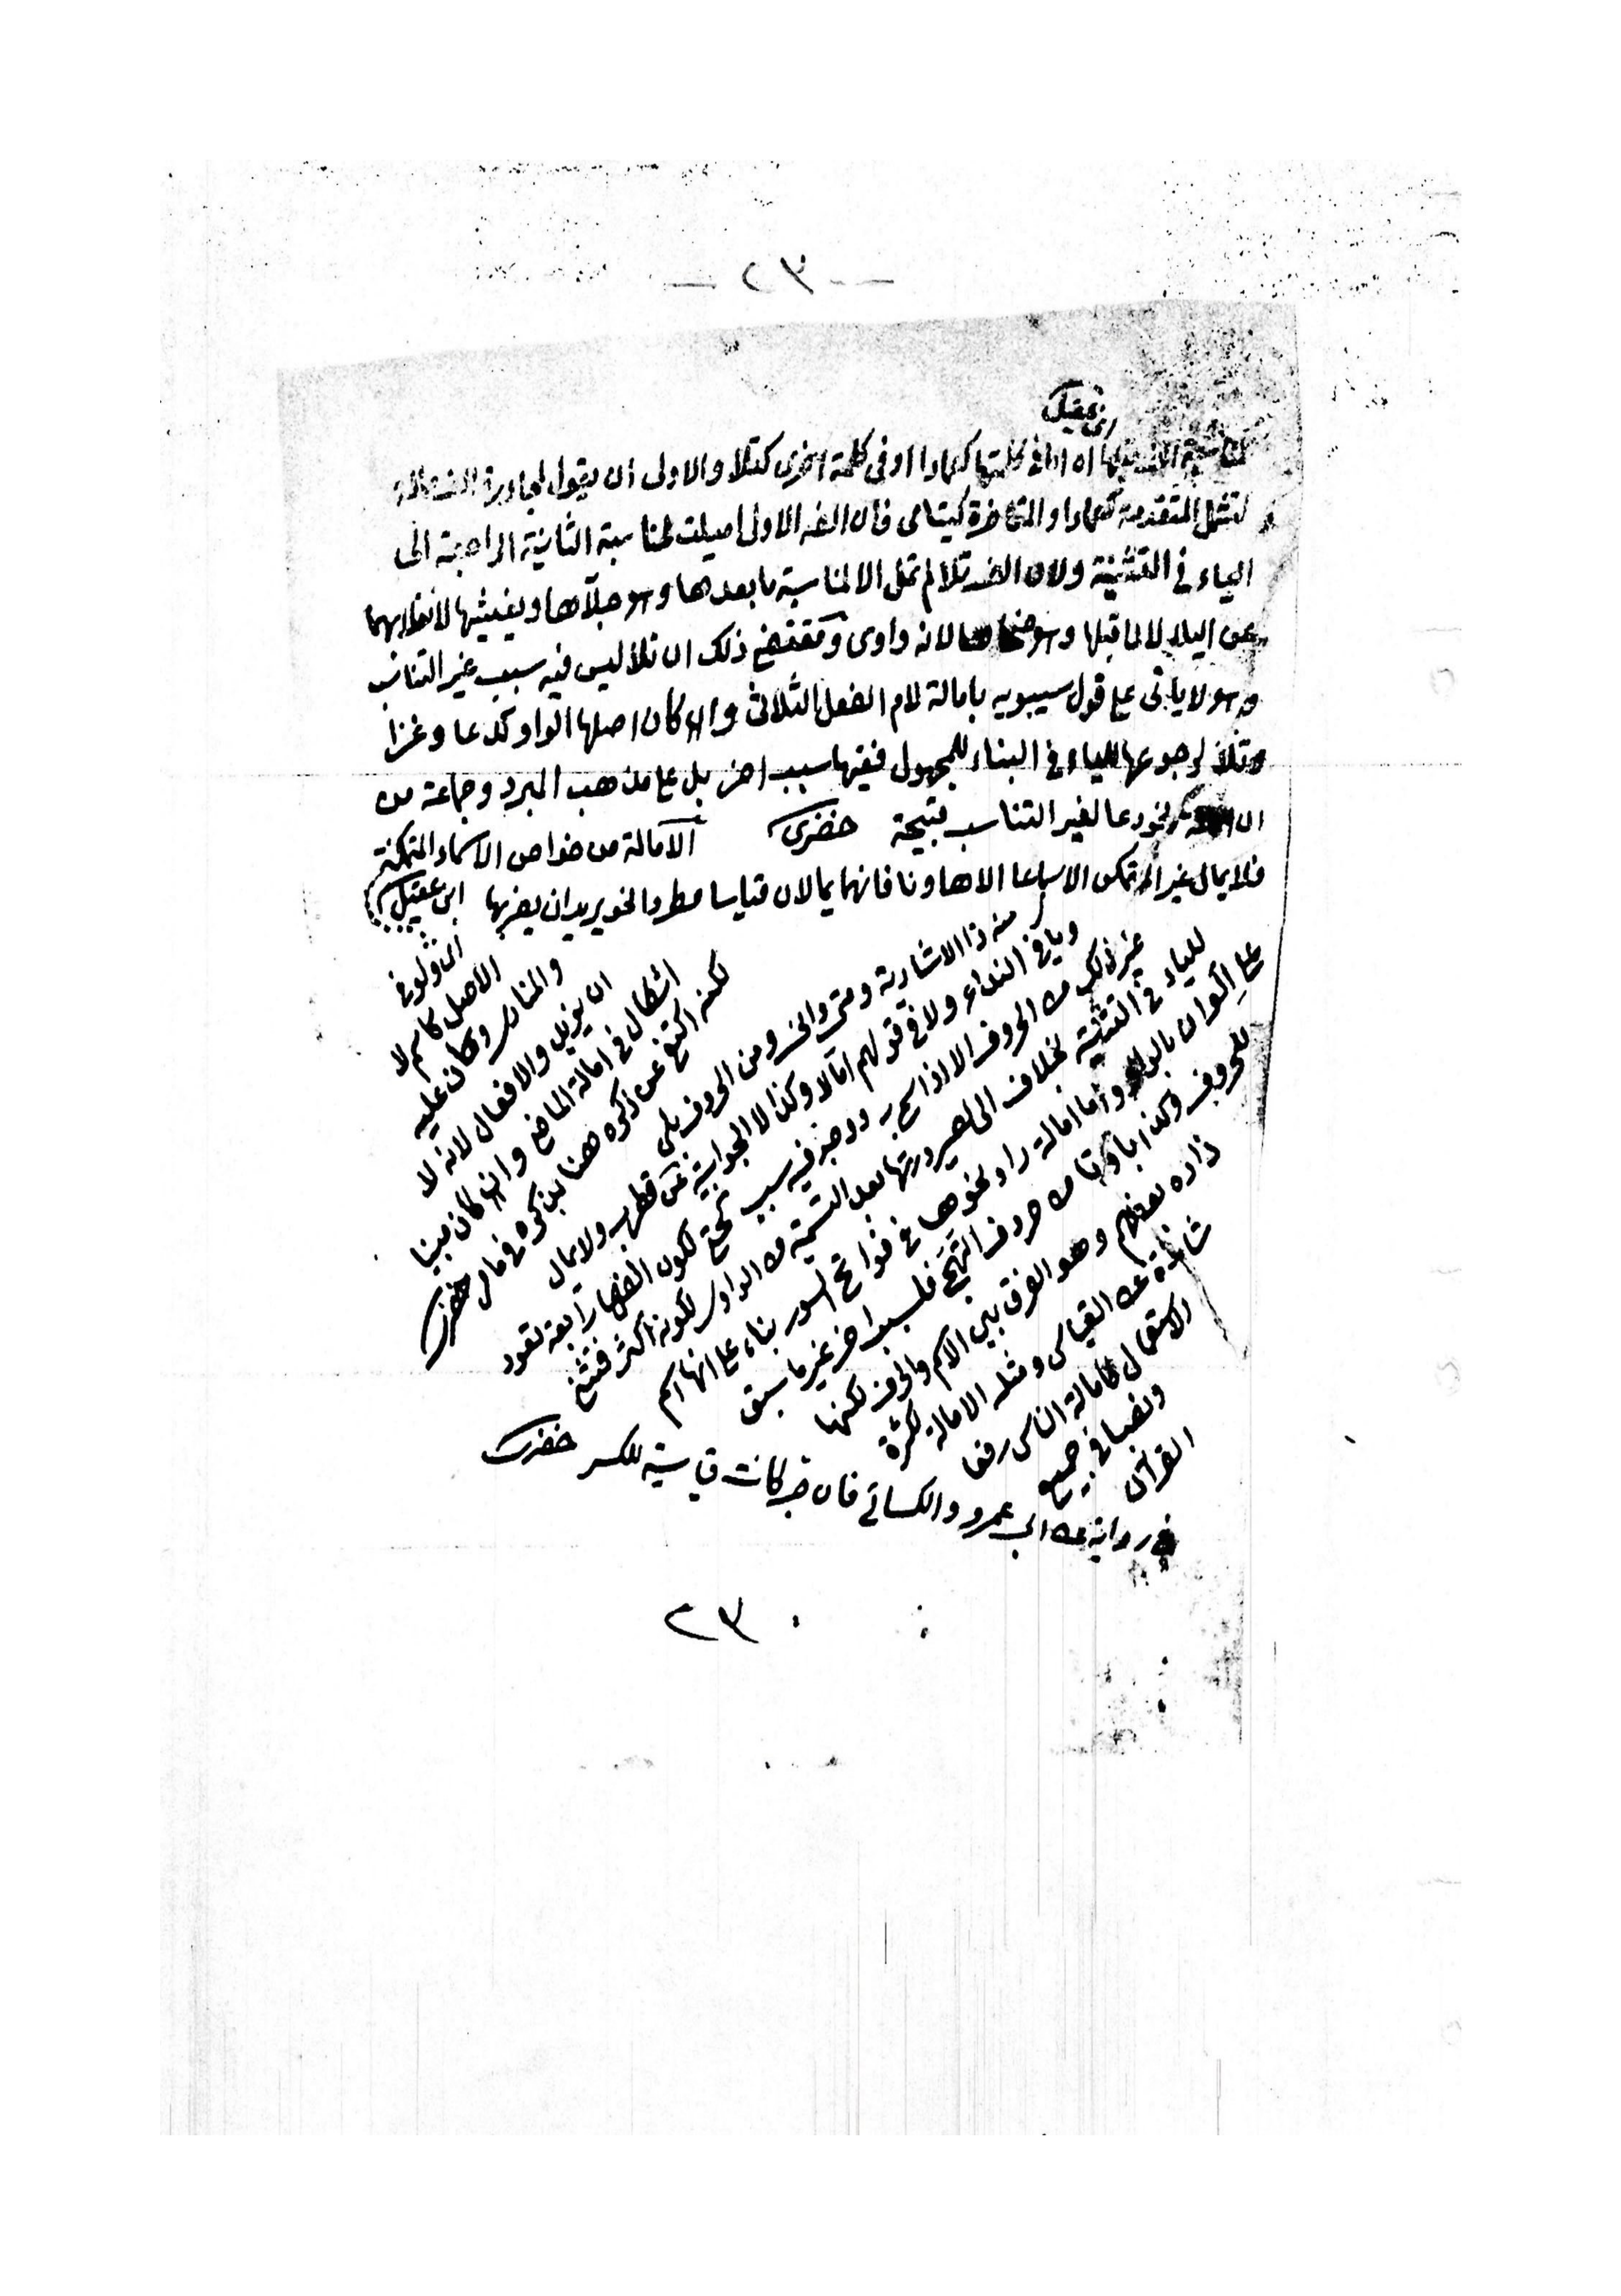 ـ ٣٢ ـ
ابن عقيل
لمناسبة الف قبلها اه اما فى كلمتها كعمادا او فى كلمة اخرى كتلا والاولى ان يقول لمجاورة الف ممالة
لتشمل المتقدمة كعمادا والمتاخرة كيتامى فان الفه الاولى اميلت لمناسبة الثانية الراجعة الى
الياء فى التثنية ولان الف تلا لم تمل الا لمناسبة ما بعدها وهو جلاها ويغشيها لانقلابهما
عن الياء لا لما قبلها وهو ضحاها لانه واوى ومقتضى ذلك ان تلا ليس فيه سبب غير التناسب
وهو لا ياتى على قول سيبويه بامالة لام الفعل الثلاثى وان كان اصلها الواو كدعا وغزا
وتلا لرجوعها للياء فى البناء للمجهول ففيها سبب اخر بل على مذهب المبرد وجماعة من
ان نحو دعا لغير التناسب قبيحة خضرى الامالة من خواص الاسماء المتمكنة
فلا يمال غير المتمكن الا سماعا الا ها ونا فانهما يمالان قياسا مطردا نحو يريد ان يضربها ابن عقيل
اى ولو فى
الاصل كاسم لا
والمنادى وكان عليه
ان يزيد والافعال لانه لا
اشكال فى امالة الماضى وان كان مبنيا
لكنه اكتفى عن ذكره هنا بذكره فى ما مر خضرى
منه ذا الاشارية ومتى وانى ومن الحروف بلى
ويا فى النداء ولا فى قولهم امالا وكذا لا الجوابية عن قطرب ولا يمال
غير ذلك من الحروف الا اذا سمى به ووجد فيه سبب كحتى لكون الفها رابعة تعود
للياء فى التثنية بخلاف الى لصيرورتها بعد التسمية من الواوى لكونه اكثر فتثنى
على الوان بالواو واما امالة را ونحوها فى فواتح السور بناء على انها اسم
للحروف وكذا با وتا من حروف التهجى فلسبب اخر غير ما سبق
زاده بعضهم وهو الفرق بين الاسم والحرف لكنها
شاذة عن القياس ومثله الامالة لكثرة
الاستعمال كامالة الناس رفعا
ونصبا فى جميع
القرآن
فى رواية عن ابى عمرو والكسائى فان جر كانت قياسية للكسر خضرى
٢٣٠